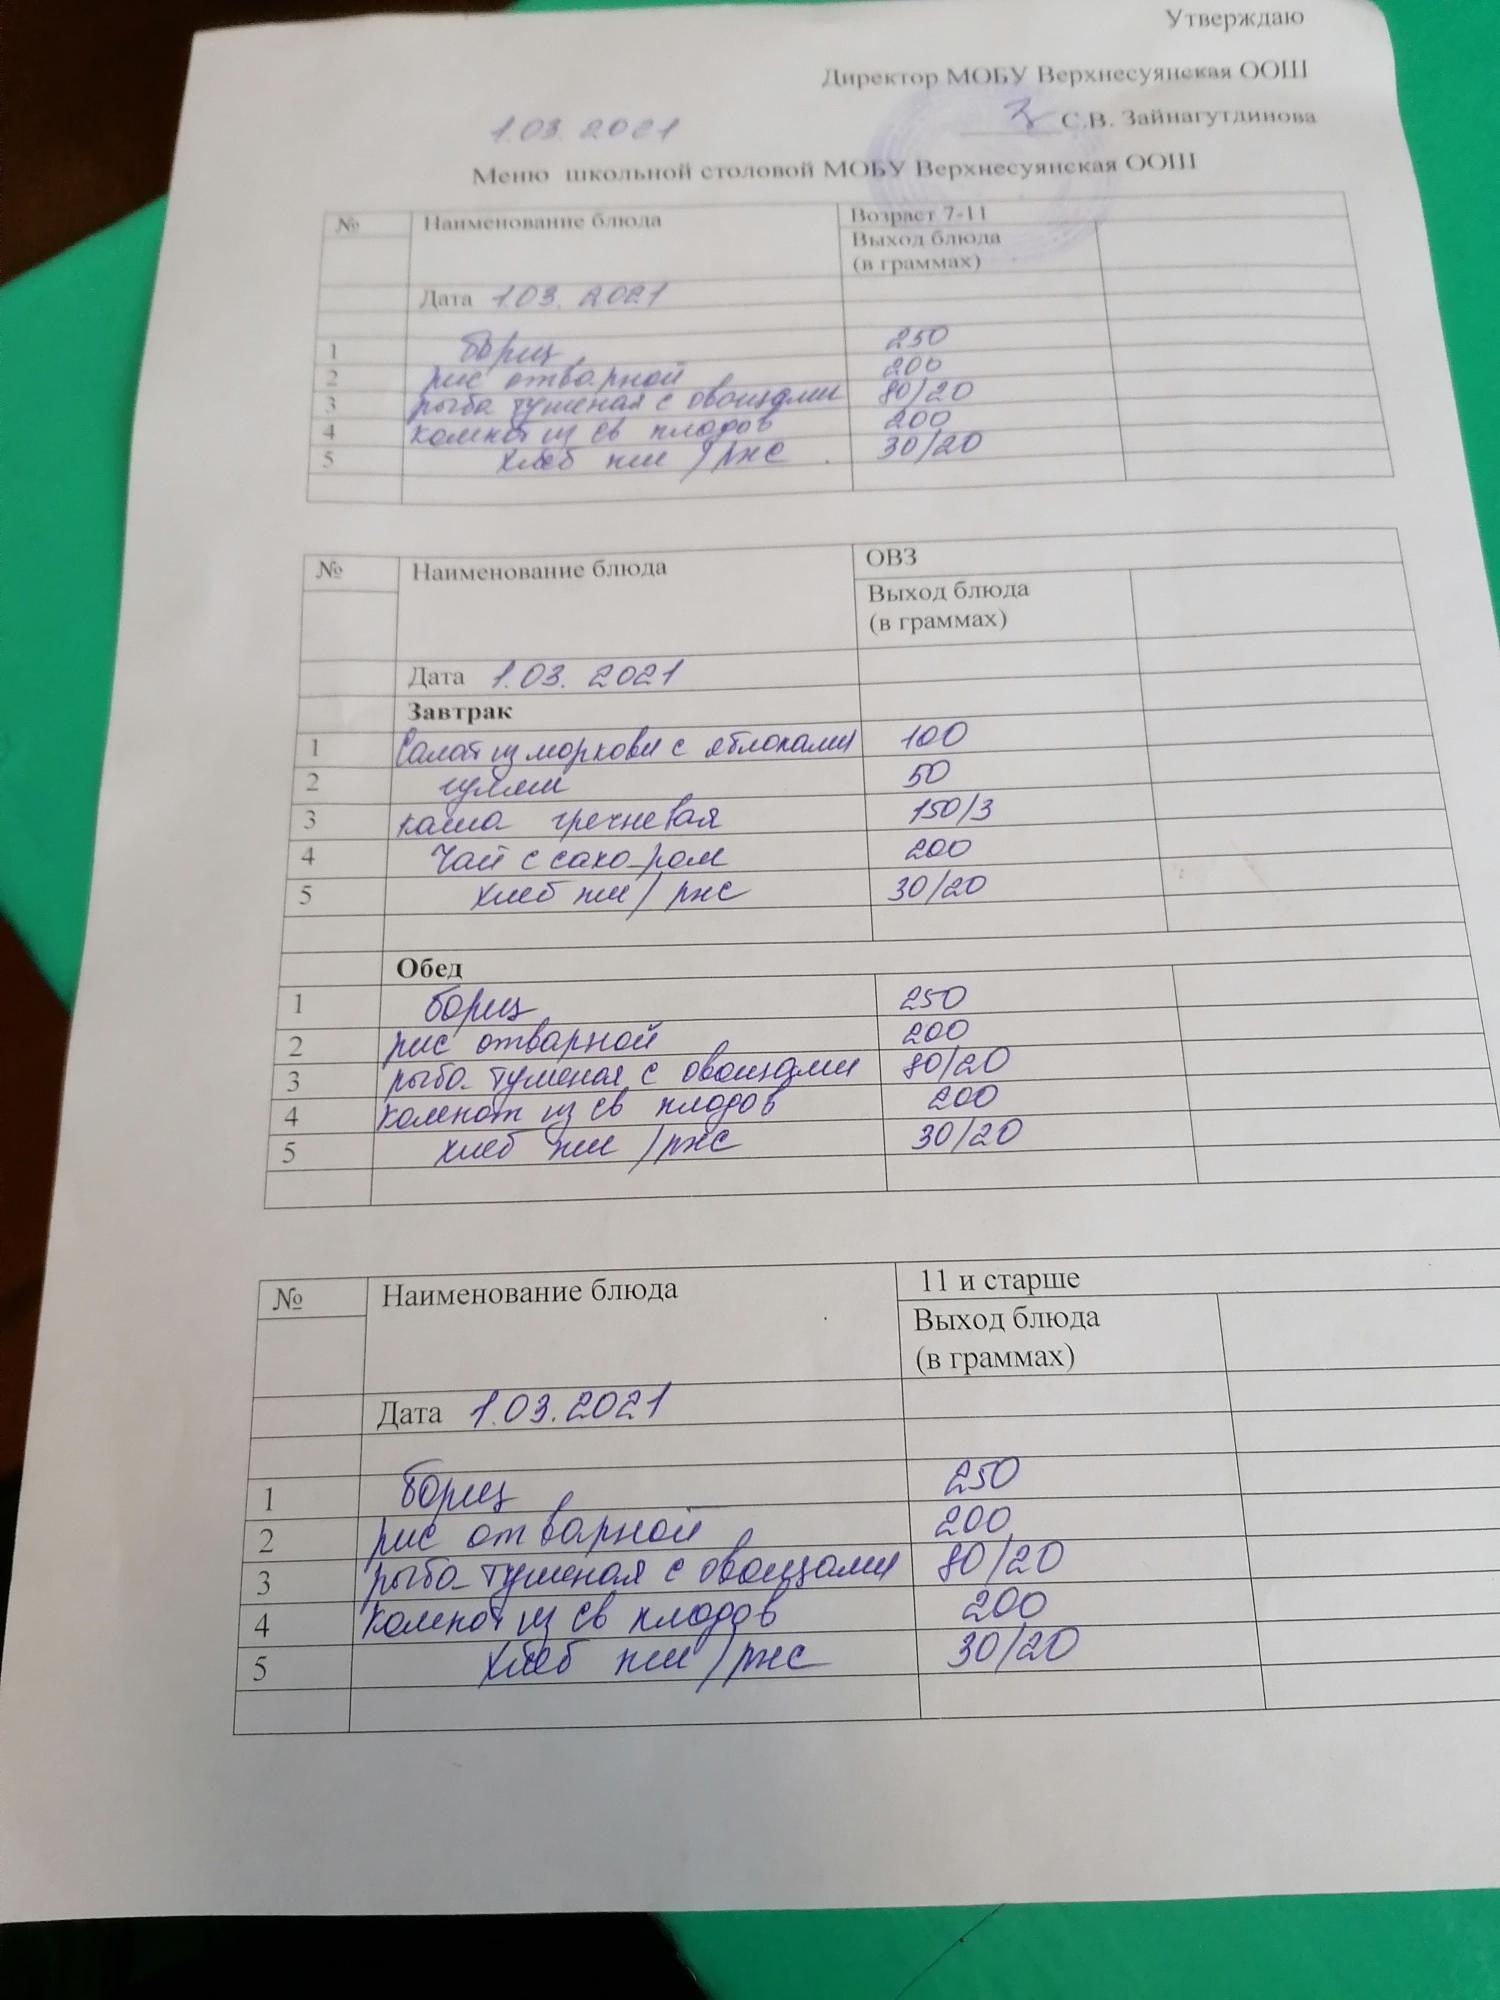 Утверждаю
Директор МОБУ Верхнесуянская ООШ
С.В. Зайнагутдинова
1.03.2021
Меню школьной столовой МОБУ Верхнесуянская ООШ
№ Наименование блюда Возраст 7-11
Выход блюда
(в граммах)
Дата 1.03.2021
1 борщ 250
2 рис отварной 200
3 рыба тушеная с овощами 80/20
4 компот из св плодов 200
5 хлеб пш/ржс 30/20
№ Наименование блюда ОВЗ
Выход блюда
(в граммах)
Дата 1.03.2021
Завтрак
1 Салат из моркови с яблоками 100
2 гуляш 50
3 каша гречневая 150/3
4 Чай с сахаром 200
5 хлеб пш/ржс 30/20
Обед
1 борщ 250
2 рис отварной 200
3 рыба тушеная с овощами 80/20
4 компот из св плодов 200
5 хлеб пш/ржс 30/20
№ Наименование блюда 11 и старше
Выход блюда
(в граммах)
Дата 1.03.2021
1 борщ 250
2 рис отварной 200
3 рыба тушеная с овощами 80/20
4 компот из св плодов 200
5 хлеб пш/ржс 30/20